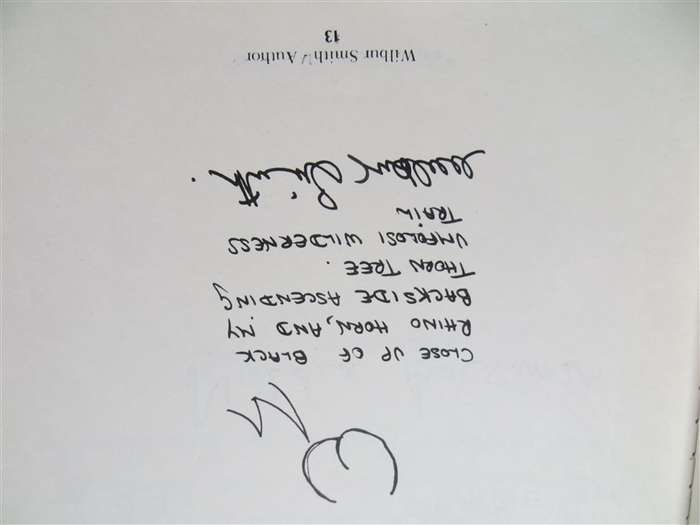 CLOSE UP OF BLACK
RHINO HORN, AND MY
BACKSIDE ASCENDING
THORN TREE.
UMFOLOSI WILDERNESS
TRAIL
Wilbur Smith.
Wilbur Smith / Author
13